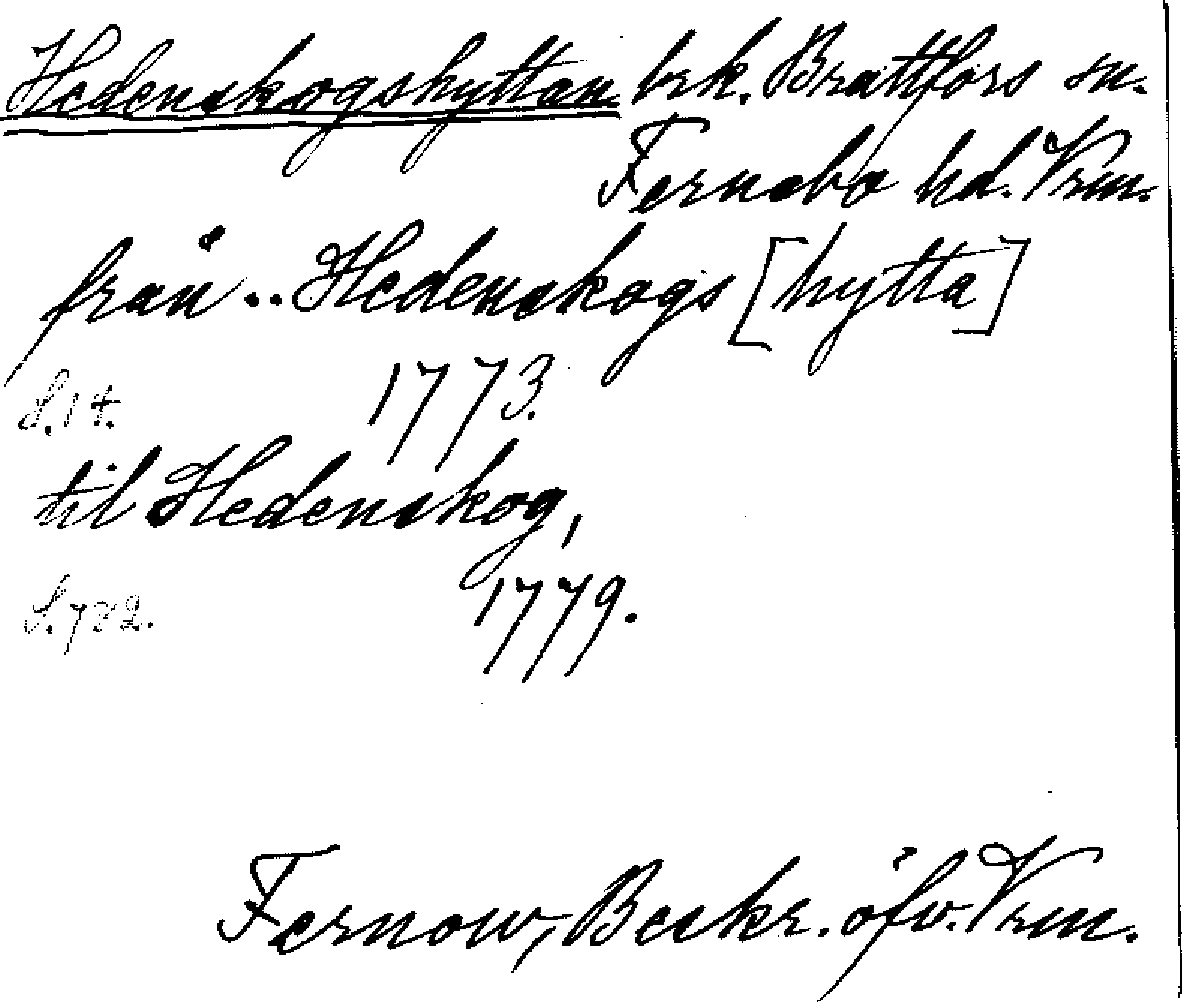 Hedenskogshyttan brk. Brattfors sn.
Fernebo hd. Vrm.
från .. Hedenskogs [hytta]
S. 14. 1773.
til Hedenskog,
S. 782. 1779.
Fernow, Beskr. öfv. Vrm.